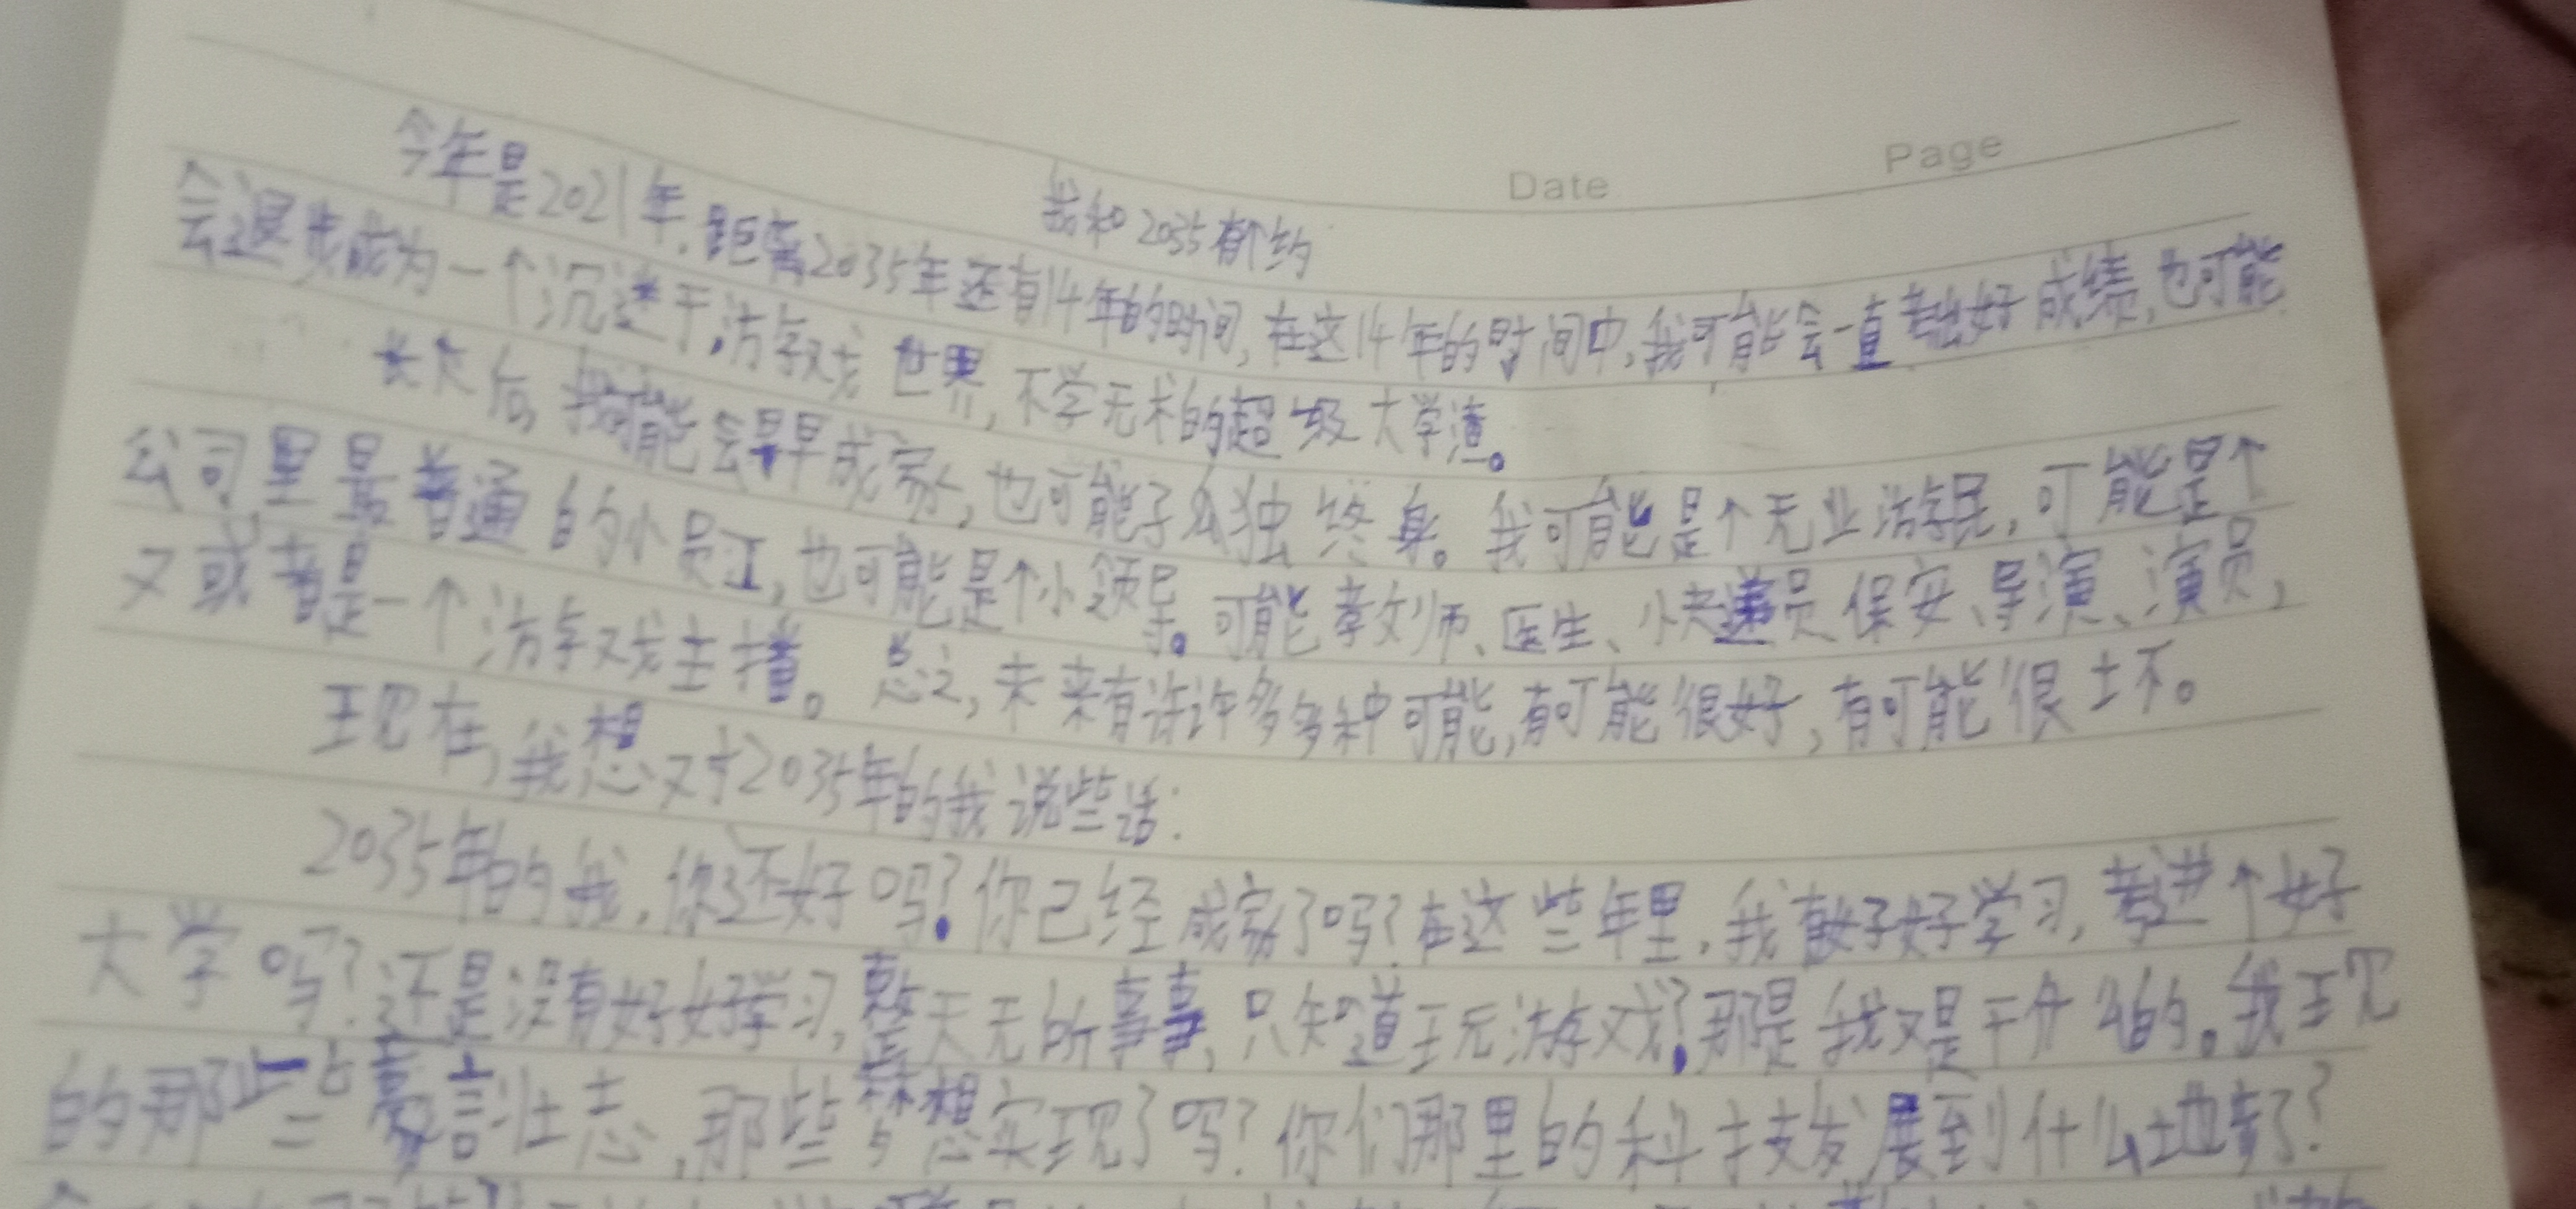 Date Page
我和2035有个约
今年是2021年,距离2035年还有14年的时间,在这14年的时间中,我可能会一直考出好成绩,也可能
会退步成为一个沉迷于游戏世界,不学无术的超级大学渣。
长大后,我可能会早早成家,也可能孑么独终身。我可能是个无业游民,可能是个
公司里最普通的小员工,也可能是个小领导。可能教师、医生、小快递员、保安、导演、演员,
又或者是一个游戏主播。总之,未来有许许多多种可能,有可能很好,有可能很坏。
现在,我想对2035年的我说些话:
2035年的我,你还好吗?你已经成家了吗?在这些年里,我有好好学习,考进个好
大学吗?还是没有好好学习,整天无所事事,只知道玩游戏?那是我又是干什么的。我现
的那些豪言壮志,那些梦想实现了吗?你们那里的科技发展到什么地步了?